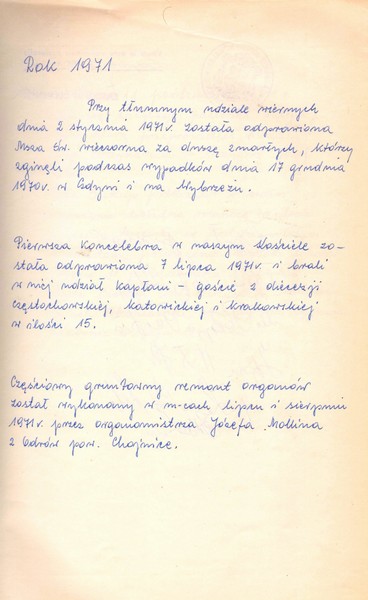 Rok 1971
Przy tłumnym udziale wiernych
dnia 2 stycznia 1971r. została odprawiona
Msza św. wieczorna za duszę zmarłych, którzy
zginęli podczas wypadków dnia 17 grudnia
1970r. w Gdyni i na Wybrzeżu.
Pierwsza Koncelebra w naszym Kościele zo-
stała odprawiona 7 lipca 1971r. i brali
w niej udział Kapłani - goście z diecezji
częstochowskiej, katowickiej i krakowskiej
w ilości 15.
Częściowy gruntowny remont organów
został wykonany w m-cach lipcu i sierpniu
1971r. przez organomistrza Józefa Mollina
z Odrów pow. Chojnice.